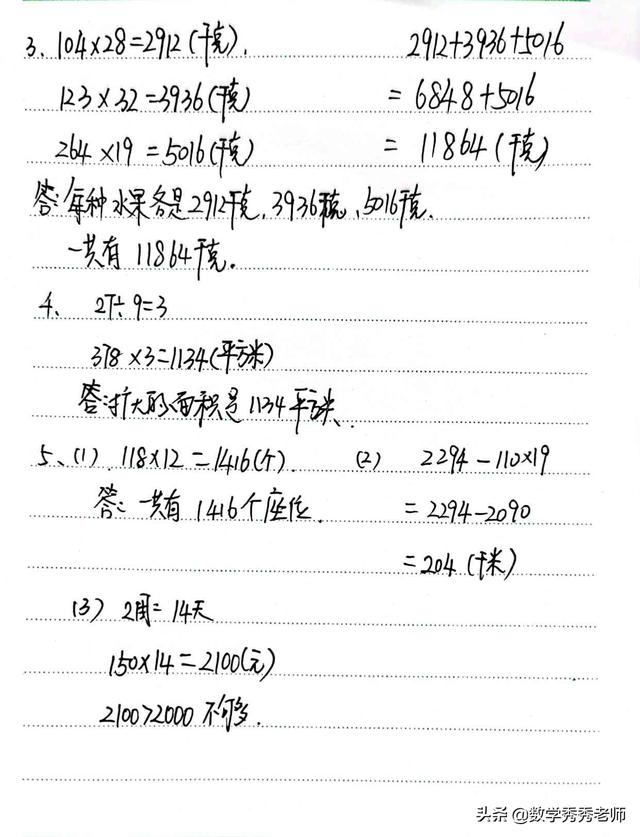 3、104×28=2912(千克)、 2912+3936+5016
123×32=3936(千克) =6848+5016
264×19=5016(千克) =11864(千克)
答:每种水果各是2912千克,3936千克,5016千克.
一共有11864千克.
4、27÷9=3
378×3=1134(平方米)
答:扩大的面积是1134平方米.
5、(1).118×12=1416(个). (2) 2294-110×19
答:一共有1416个座位. =2294-2090
=204(千米)
(3) 2周=14天
150×14=2100(元)
2100>2000 不够.
头条@数学秀秀老师